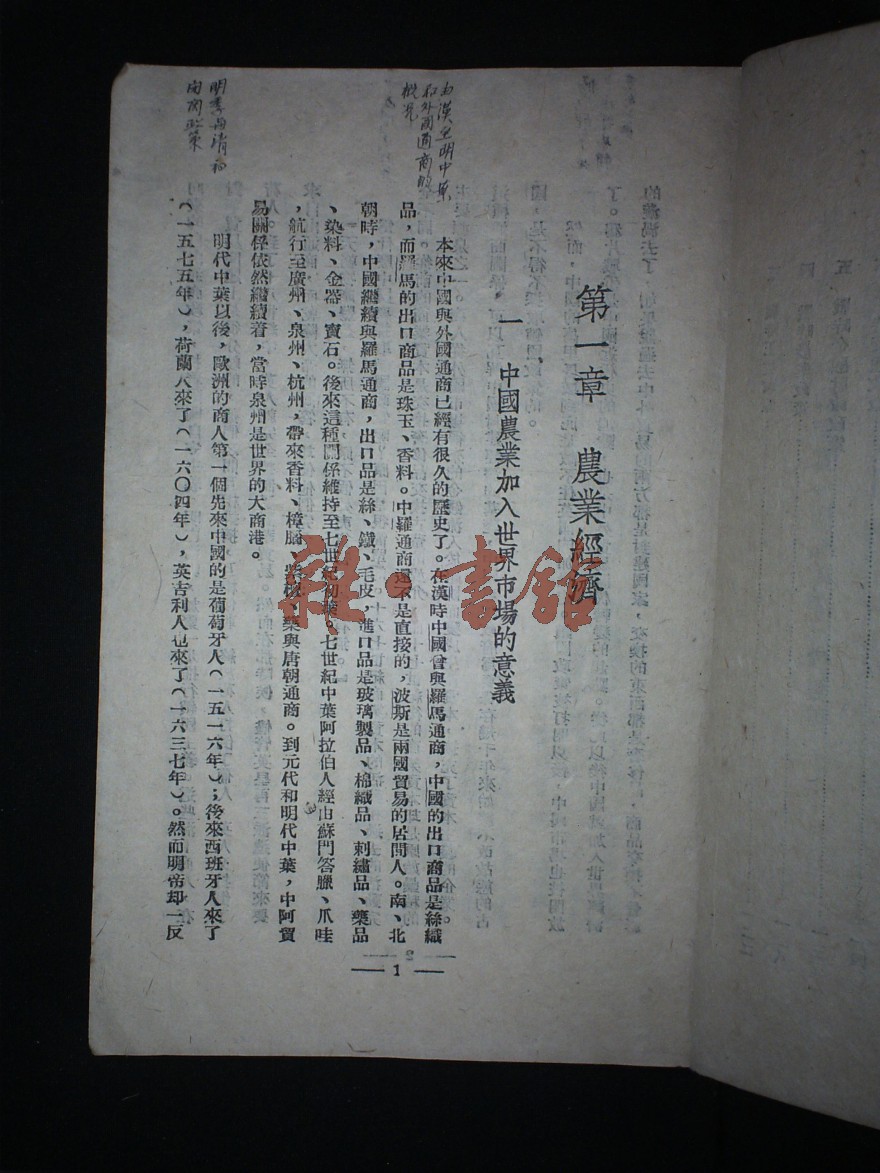 第一章　農業經濟
一　中國農業加入世界市場的意義
本來中國與外國通商已經有很久的歷史了。在漢時中國曾與羅馬通商，中國的出口商品是絲織
品，而羅馬的出口商品是珠玉、香料。中羅通商還不是直接的，波斯是兩國貿易的居間人。南、北
朝時，中國繼續與羅馬通商，出口品是絲、鐵、毛皮，進口品是玻璃製品、棉織品、刺繡品、藥品
、染料、金器、寶石。後來這種關係維持至七世紀初葉。七世紀中葉阿拉伯人經由蘇門答臘、爪哇
，航行至廣州、泉州、杭州，帶來香料、樟腦、藥與唐朝通商。到元代和明代中葉，中阿貿
易關係依然繼續着，當時泉州是世界的大商港。
明代中葉以後，歐洲的商人第一個先來中國的是葡萄牙人（一五一六年）；後來西班牙人來了
（一五七五年），荷蘭人來了（一六〇四年），英吉利人也來了（一六三七年）。然而明帝却一反
由漢至明中葉
和外國通商的
概況
— 1 —
雜·書館